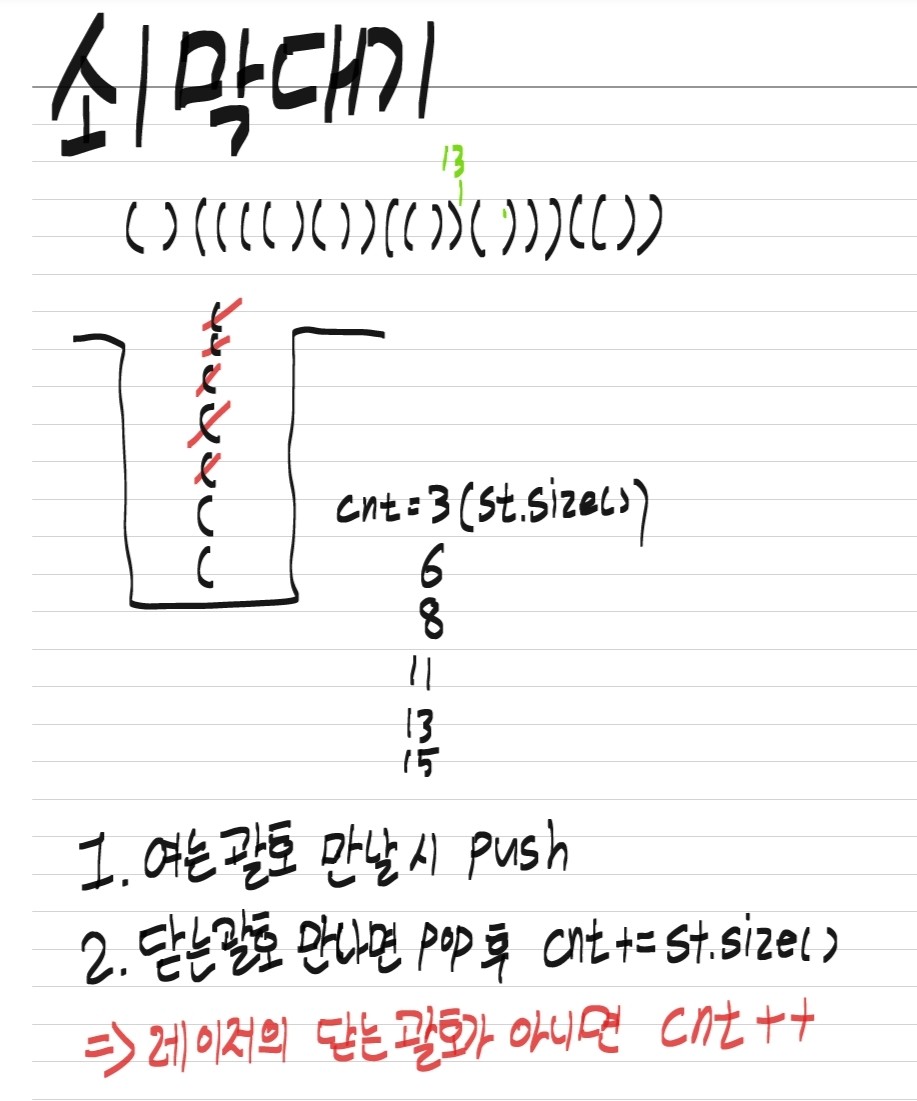 쇠막대기
13
()(((()())(())()))(())
(
(
(
(
(
(
(
cnt=3(st.size())
6
8
11
13
15
1. 여는괄호 만날시 push
2. 닫는괄호 만나면 pop후 cnt+=st.size()
=> 레이저의 닫는괄호가 아니면 cnt++